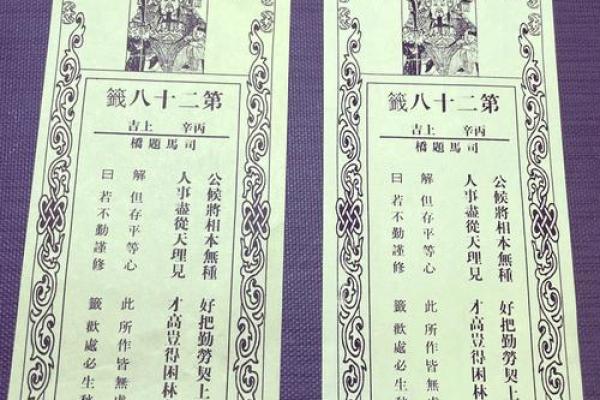 第二十八籤
丙辛 上吉
司馬題橋
公候將相本無種 好把勤勞契上
人事盡從天理見 才高豈得困林
解 但存平等心 此 所作皆無
曰 若不勤謹修 籤 歡處必生
第二十八籤
丙辛 上吉
司馬題橋
公候將相本無種 好把勤勞契上
人事盡從天理見 才高豈得困林
解 但存平等心 此 所作皆無
曰 若不勤謹修 籤 歡處必生